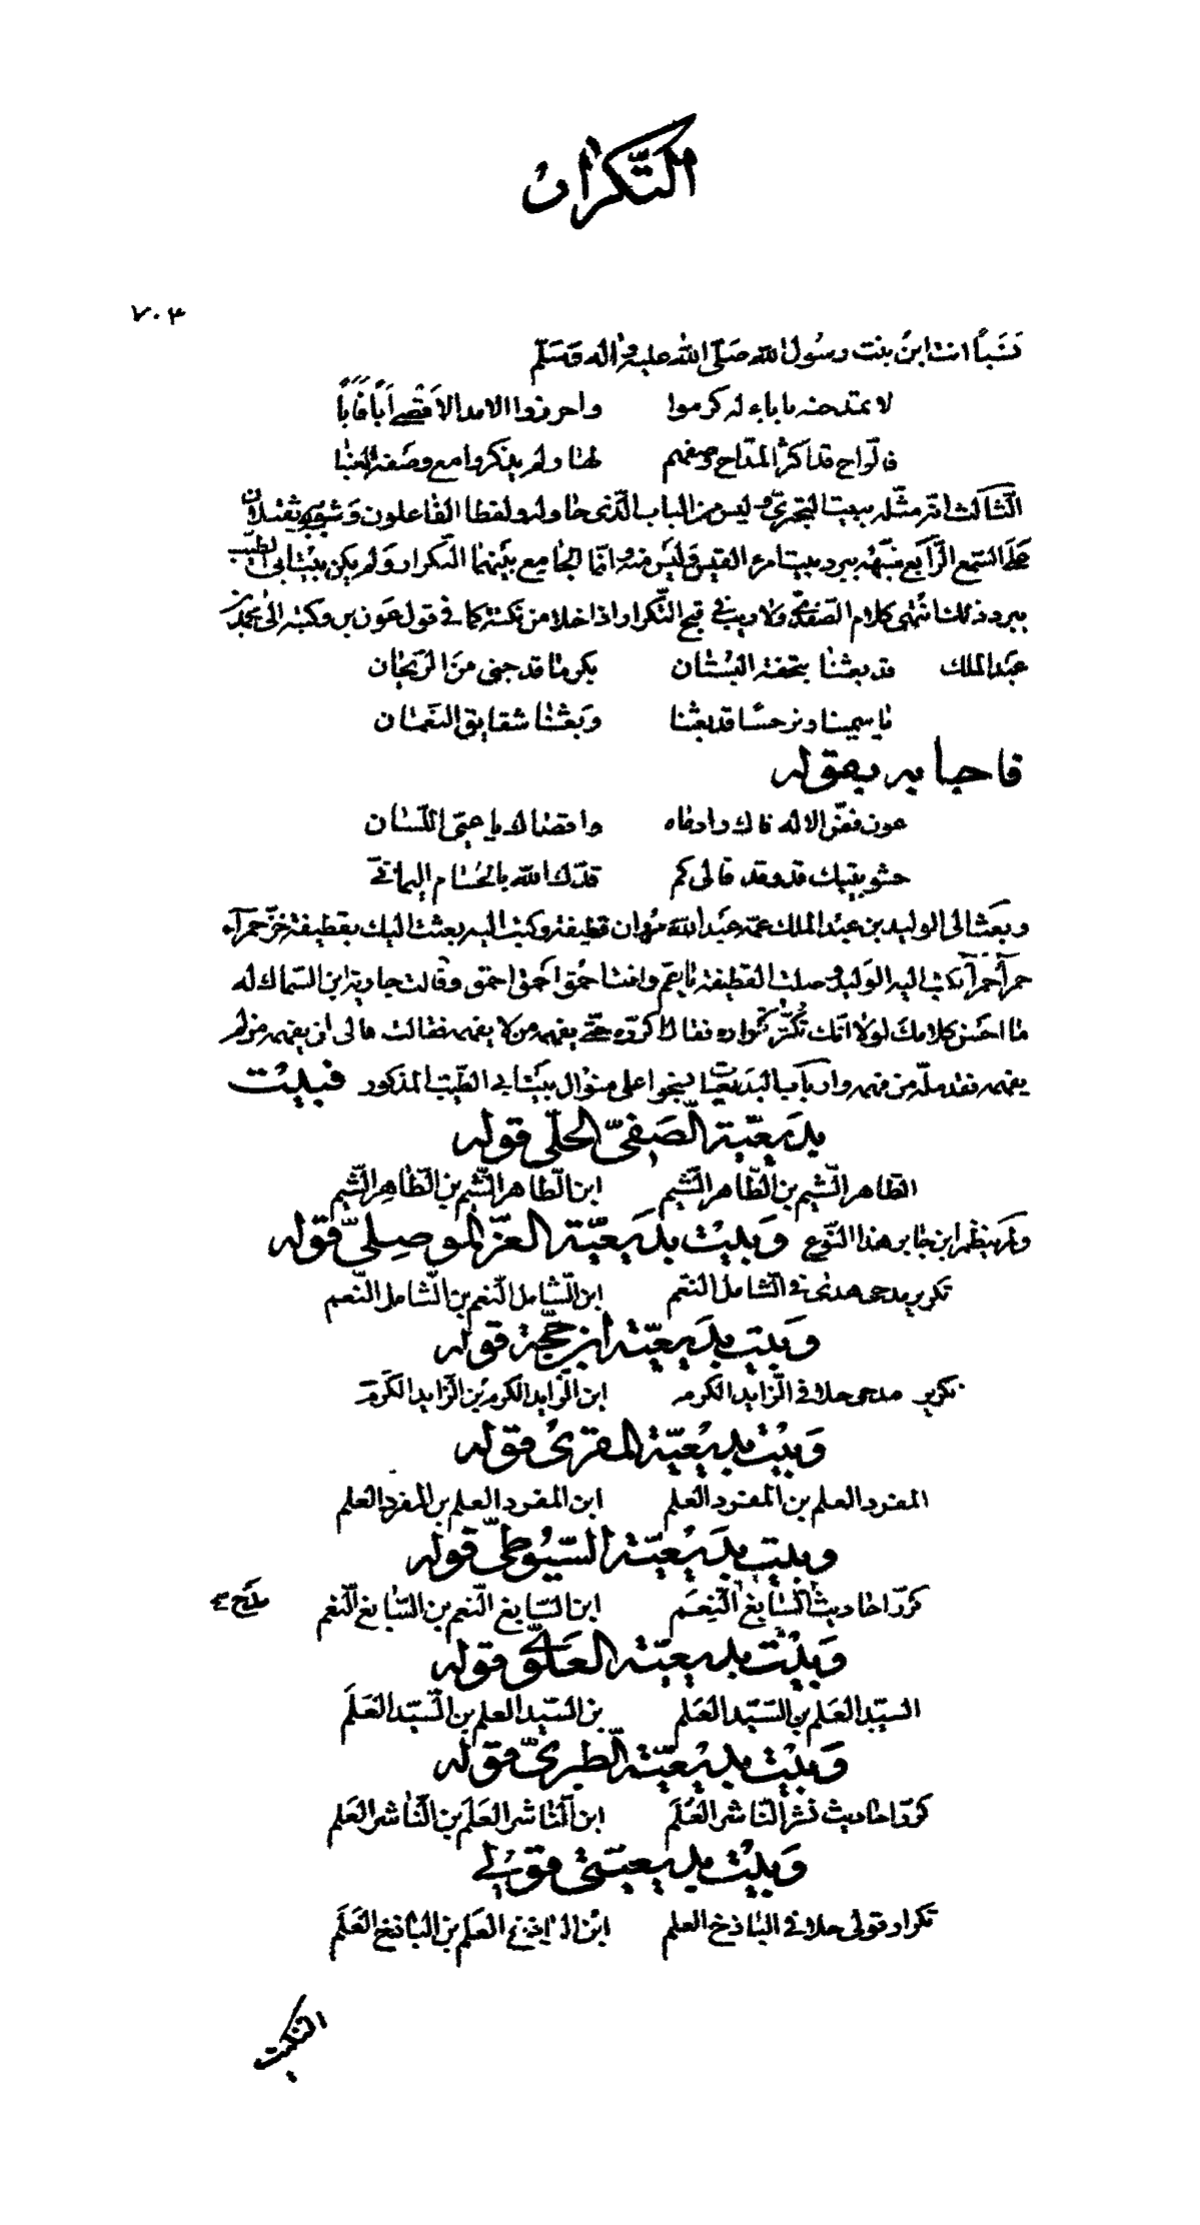 التكرار
٧٠٤
نسبا انت ابن بنت رسول الله صلى الله عليه واله وسلم
لا يمتدحنه باباء له كرموا واحرزوا الامد الاقصى ابا فابا
فالواح قد اكثر المداح وصفهم لهنا ولم يذكروا مع وصفه العنبا
الثالث انه مثله ببيت البحترى وليس من الباب الذى حاوله ولفظا الفاعلون وشبهه ثقيلان
على السمع الرابع شبهه ببرد بيت امرء القيس وليس منه وانما الجامع بينهما التكرار ولم يكن بيت ابى الطيب
ببرد ذلك انتهى كلام الصفدى ولا ريب فى قبح التكرار اذا خلا من نكتة كما فى قول عون بن وكتبه الى
عبد الملك قد بعثنا بتحفة البستان بكر ما قد جنى من الريحان
ياسمينا ونرجسا قد بعثنا وبعثنا شقايق النعمان
فاجابه بقوله
عون فض الاله فاك وادماه واقصاك يا عيى اللسان
حشو بيتيك قد وقد فالى كم قدك الله بالحسام اليمانى
وبعث الى الوليد بن عبد الملك عمه عبد الله مروان قطيفة وكتب اليه بعثت اليك بقطيفة خز حمرآء
حمرآ حمرآ فكتب اليه الوليد وصلت القطيفة يا عم وانت احمق احمق احمق وقالت جارية ابن السماك له
ما احسن كلامك لولا انك تكثر تكراره فقال اكرره حتى يفهمه من لا يفهمه فقالت فالى ان يفهمه من لم
يفهمه فقد ملّه من فهمه وارباب البديعيات نسجوا على منوال بيت ابى الطيب المذكور فبيت
بديعية الصفى الحلى قوله
الطاهر الشيم بن الطاهر الشيم ابن الطاهر الشيم بن الطاهر الشيم
ولم ينظم ابن جابر هذا النوع وبيت بديعية العز الموصلى قوله
تكرير مدحى هدى فى الشامل النعم ابن الشامل النعم بن الشامل النعم
وبيت بديعية ابن حجة قوله
تكرير مدحى حلا فى الزايد الكرم ابن الزايد الكرم بن الزايد الكرم
وبيت بديعية المقرى قوله
المفرد العلم بن المفرد العلم ابن المفرد العلم بن المفرد العلم
وبيت بديعية السيوطى قوله
كرر احاديث السابغ النعم ابن السابغ النعم بن السابغ النعم
وبيت بديعية العلوى قوله
السيد العلم بن السيد العلم بن السيد العلم بن السيد العلم
وبيت بديعية الطبرى قوله
كرر احاديث نشر الناشر العلم ابن الناشر العلم بن الناشر العلم
وبيت بديعيتى قولى
تكرار قولى حلا فى الباذخ العلم ابن الباذخ العلم بن الباذخ العلم
التنكيت